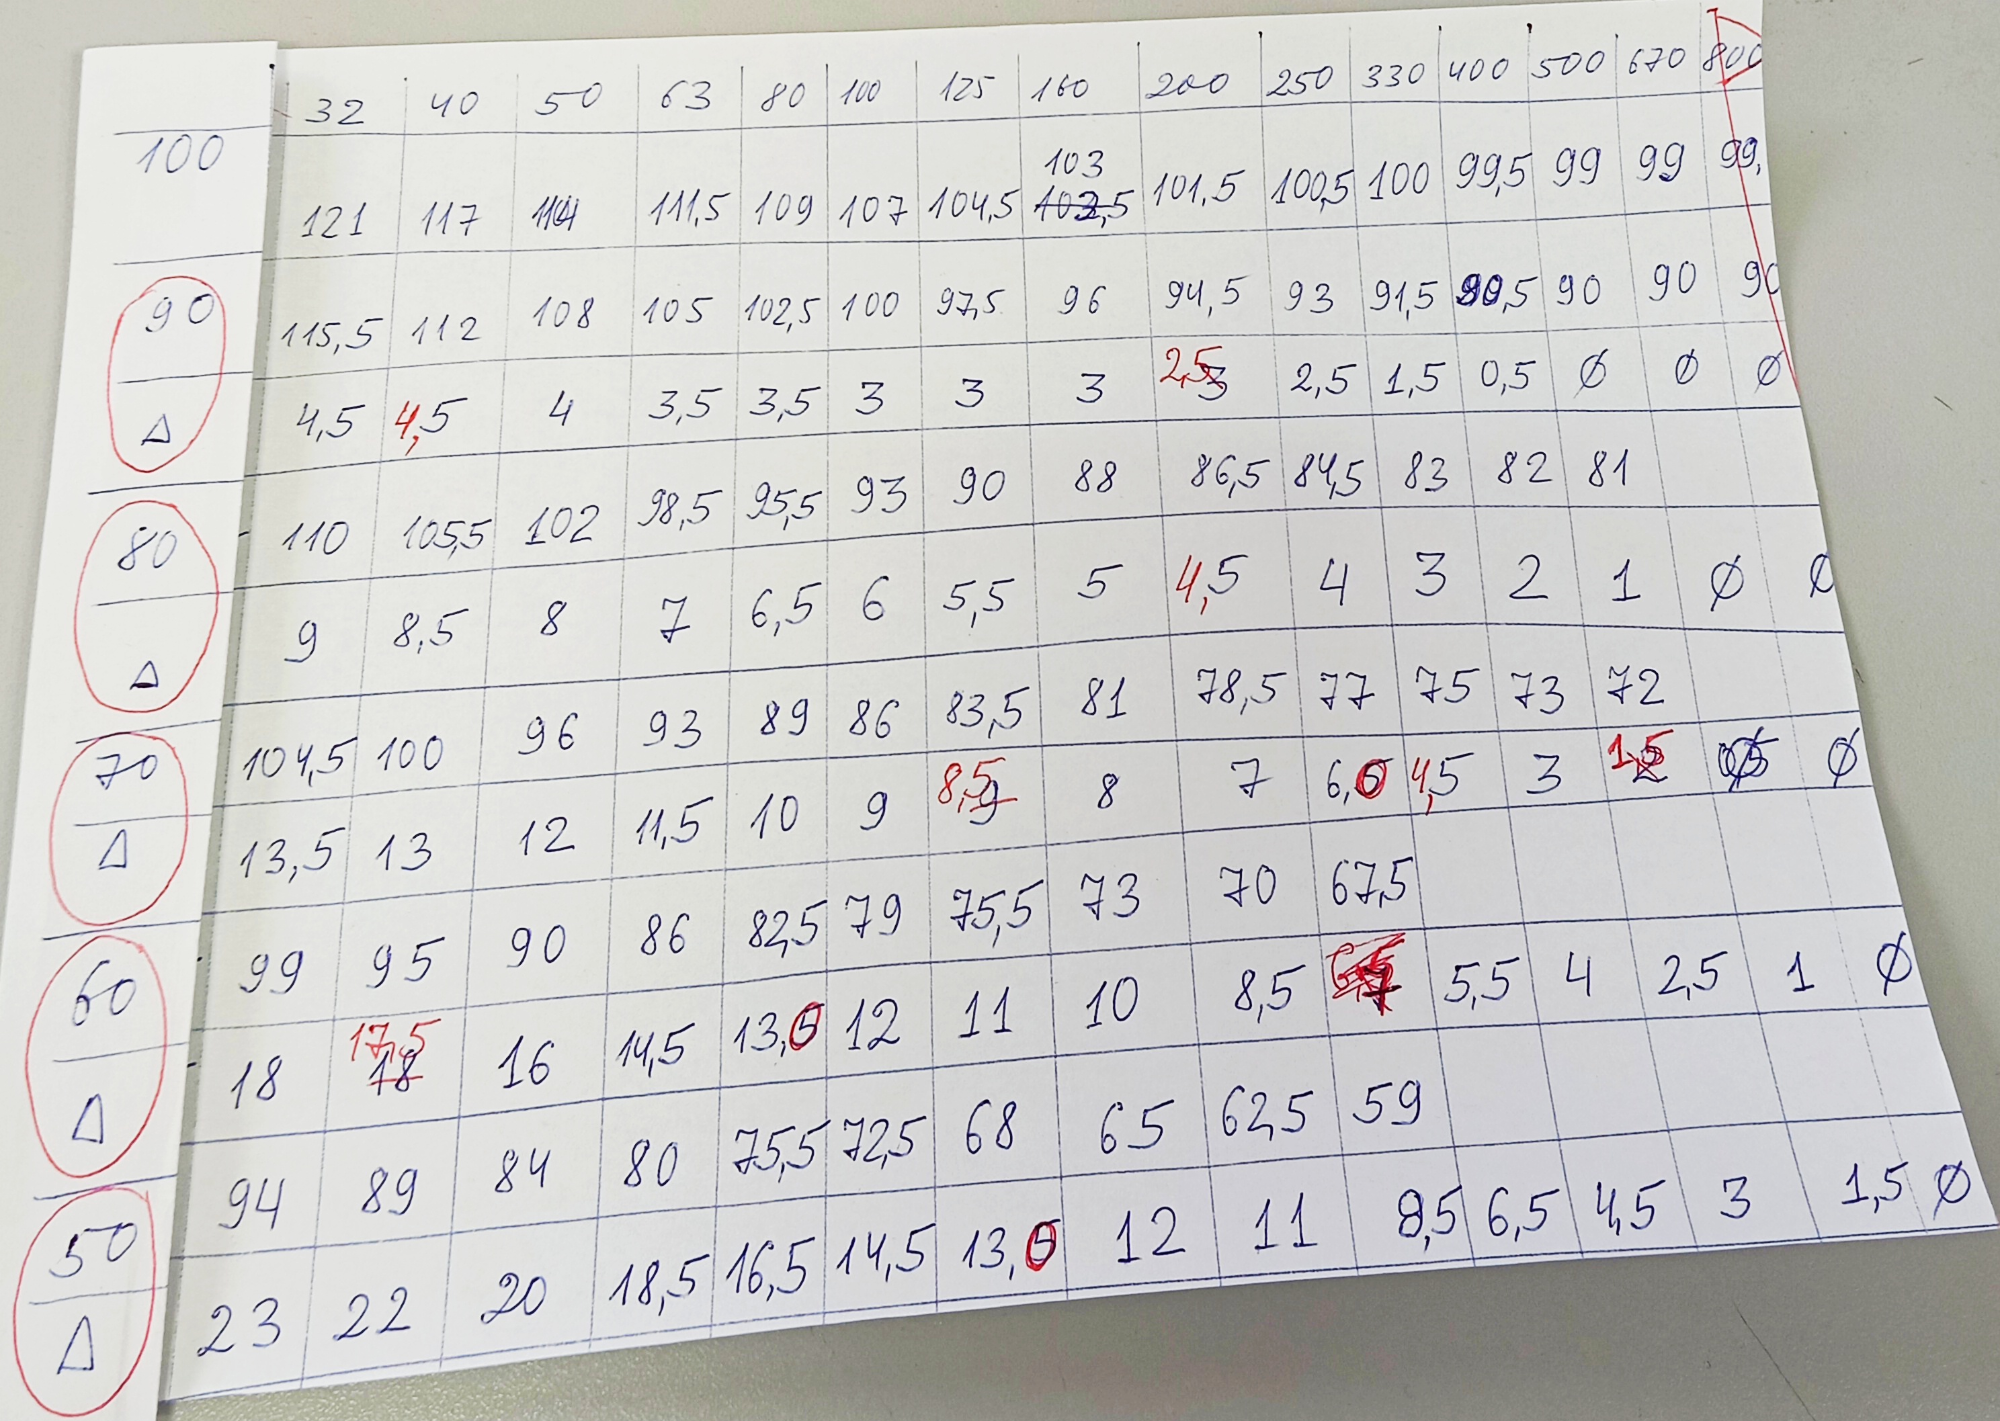 32 40 50 63 80 100 125 160 200 250 330 400 500 670 800
100 121 117 114 111,5 109 107 104,5 103 102,5 101,5 100,5 100 99,5 99 99 99,
90 115,5 112 108 105 102,5 100 97,5 96 94,5 93 91,5 90,5 90 90 90
Δ 4,5 4,5 4 3,5 3,5 3 3 3 2,5 3 2,5 1,5 0,5 Ø Ø Ø
80 110 105,5 102 98,5 95,5 93 90 88 86,5 84,5 83 82 81
Δ 9 8,5 8 7 6,5 6 5,5 5 4,5 4 3 2 1 Ø Ø
70 104,5 100 96 93 89 86 83,5 81 78,5 77 75 73 72
Δ 13,5 13 12 11,5 10 9 8,5 9 8 7 6,0 4,5 3 1,5 2 Ø Ø
60 99 95 90 86 82,5 79 75,5 73 70 67,5
Δ 18 17,5 18 16 14,5 13,0 12 11 10 8,5 7 5,5 4 2,5 1 Ø
50 94 89 84 80 75,5 72,5 68 65 62,5 59
Δ 23 22 20 18,5 16,5 14,5 13,0 12 11 8,5 6,5 4,5 3 1,5 Ø